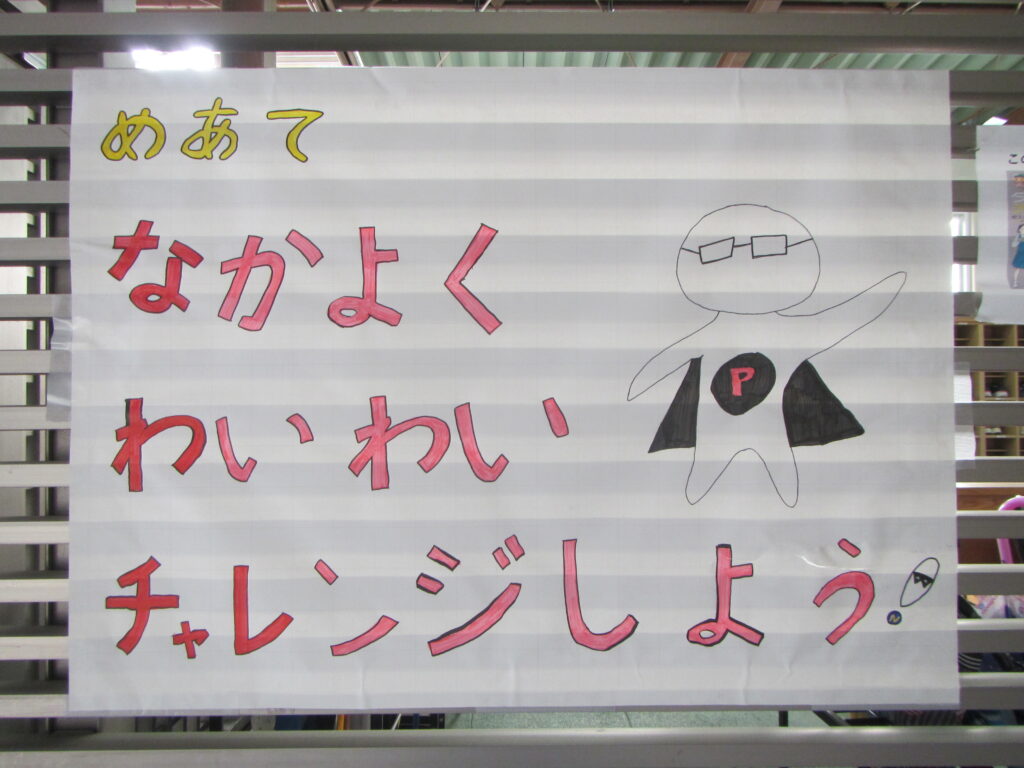 めあて
なかよく
わいわい
チャレンジしよう!
P
N